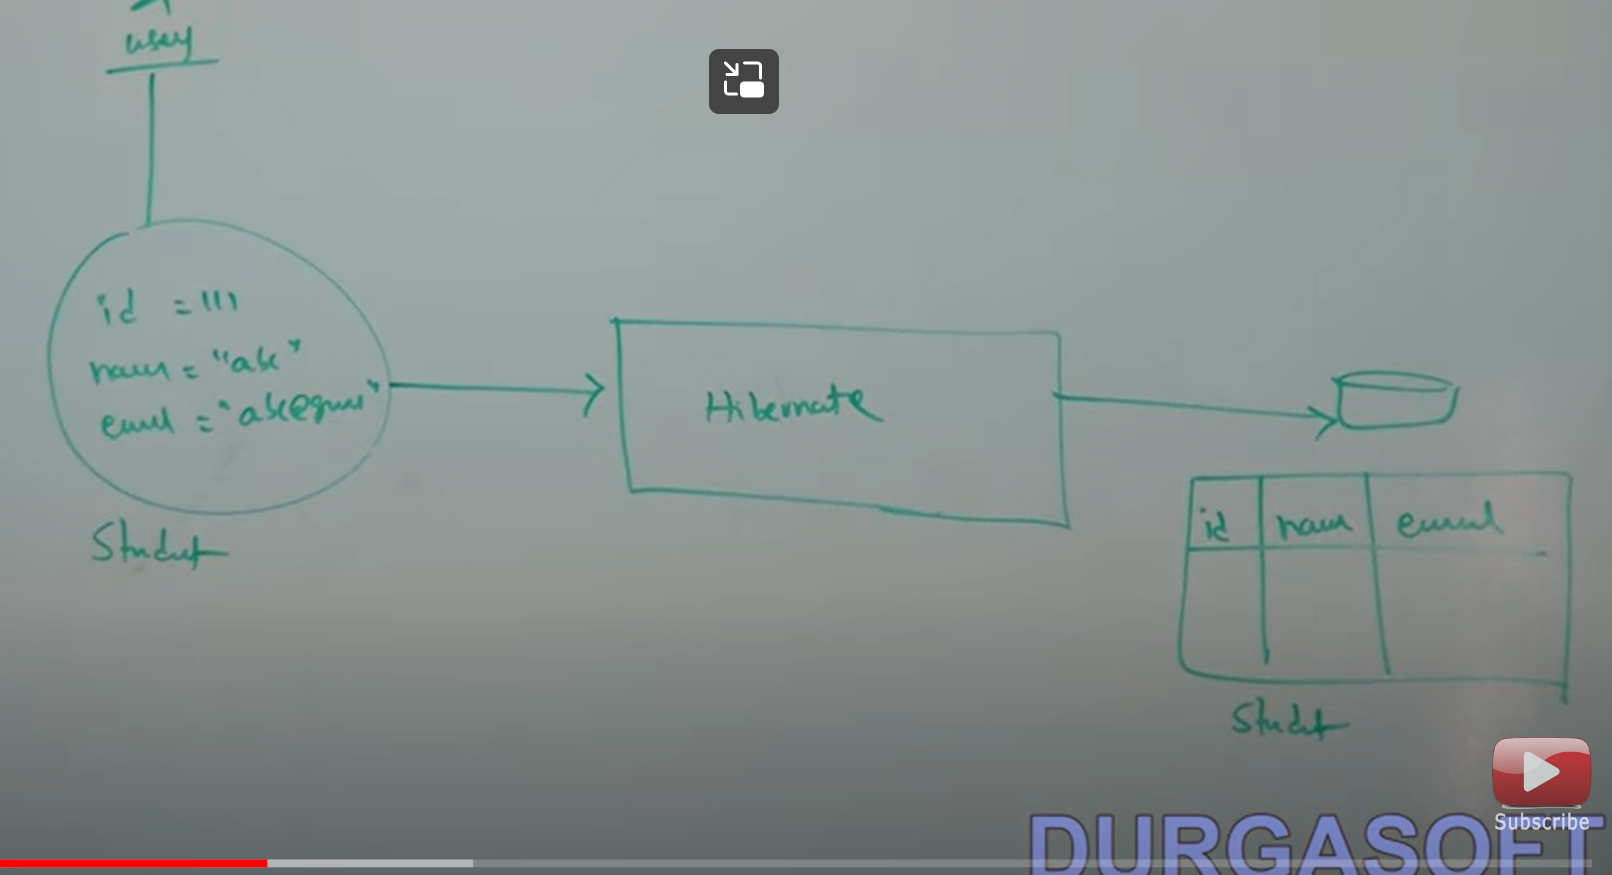 user
id = 111
name = "abc"
email = "abc@gmai"
Student
Hibernate
id name email
Student
Subscribe
DURGASOFT